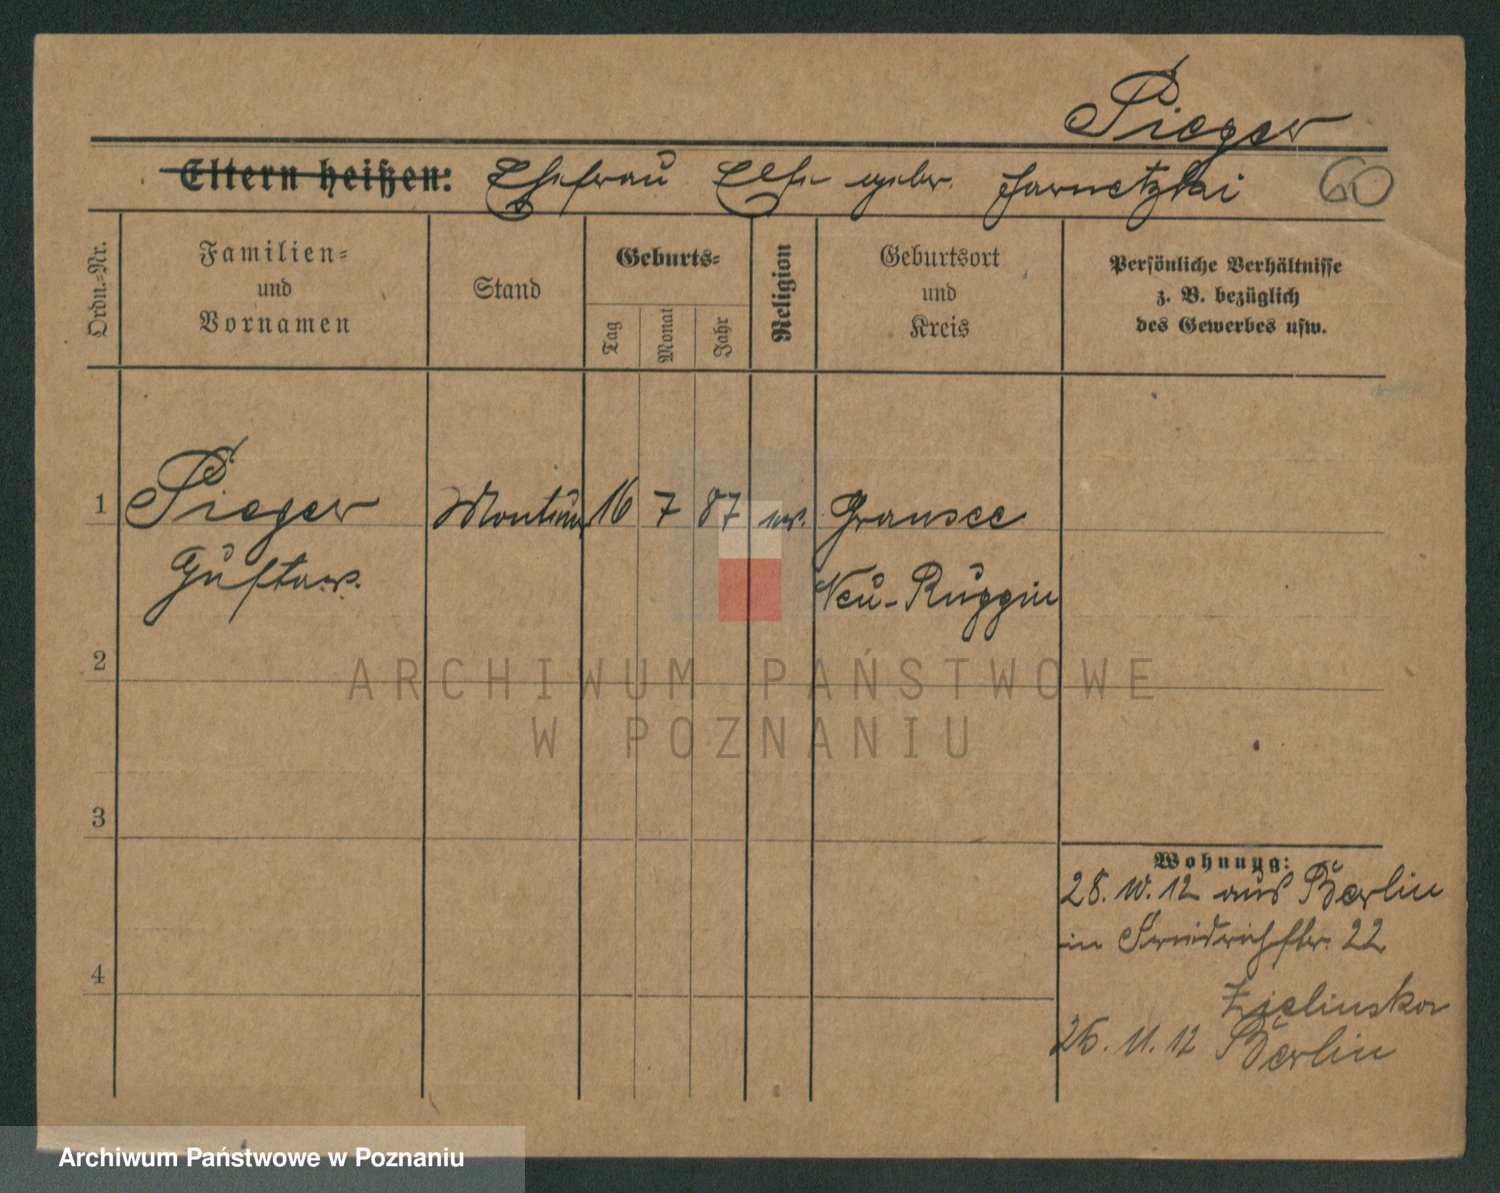 Pieger
Eltern heißen: Ehefrau Else gebr. Jarnetzki
60
Ordn.-Nr.
Familien-
und
Vornamen
Stand
Geburts-
Tag
Monat
Jahr
Religion
Geburtsort
und
Kreis
Persönliche Verhältnisse
z. B. bezüglich
des Gewerbes usw.
1 Pieger Monteur 16 7 87 ev. Gransee
Gustav. Neu-Ruppin
2
3
4
Wohnung:
28. 10. 12 aus Berlin
in Friedrichstr. 22
Zielinska
26. 11. 12 Berlin
ARCHIWUM PAŃSTWOWE
W POZNANIU
Archiwum Państwowe w Poznaniu